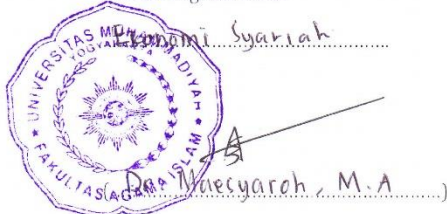 Ekonomi Syariah
UNIVERSITAS MUHAMMADIYAH
YOGYAKARTA
FAKULTAS AGAMA ISLAM
(Dr. Maesyaroh, M.A)